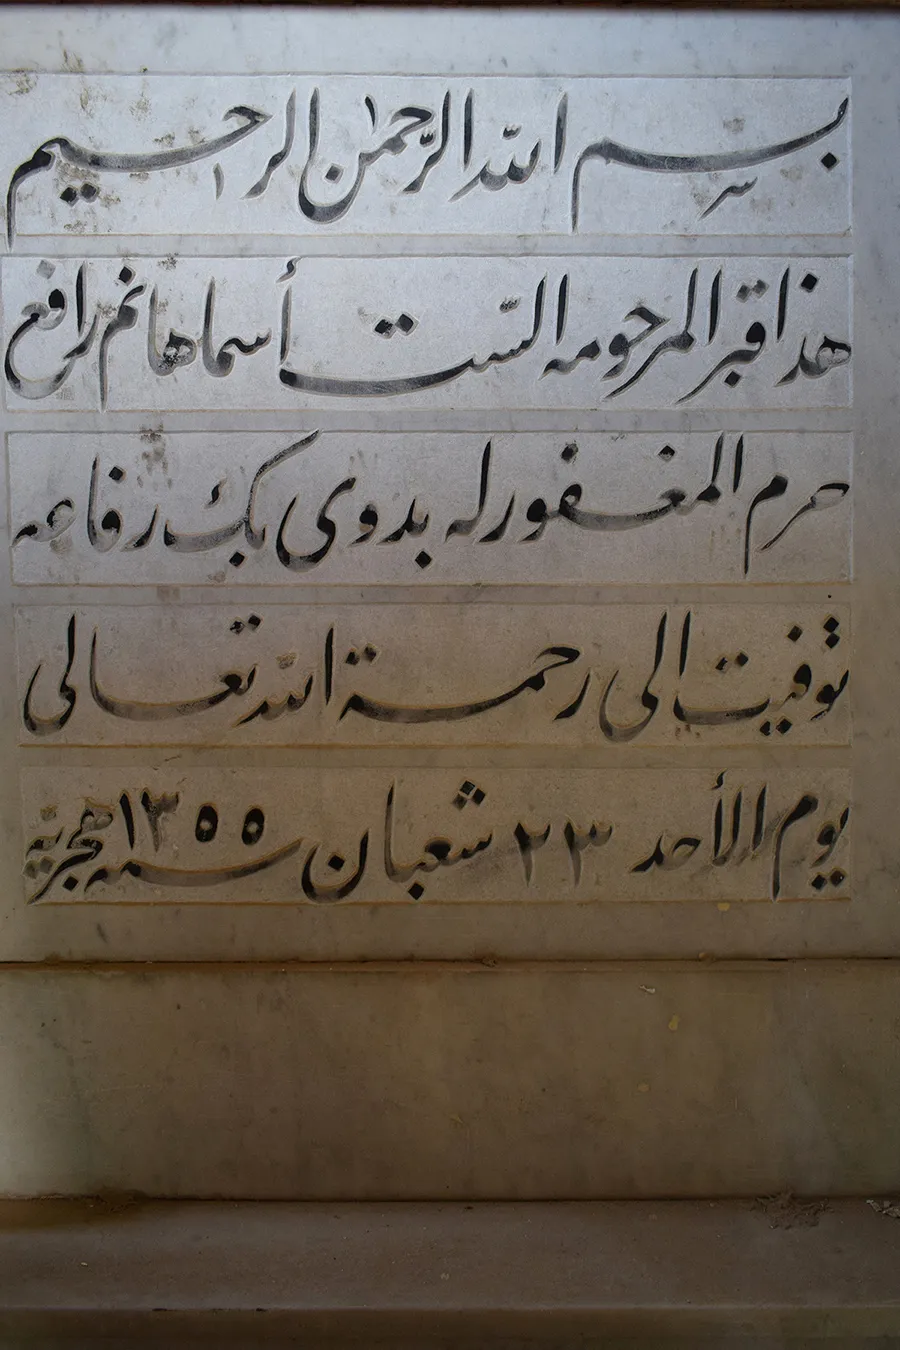 بسم الله الرحمن الرحيم
هذا قبر المرحومه الست أسما هانم رافع
حرم المغفور له بدوى بك رفاعه
توفيت الى رحمة الله تعالى
يوم الأحد ٢٣ شعبان سنه ١٣٥٥ هجرية